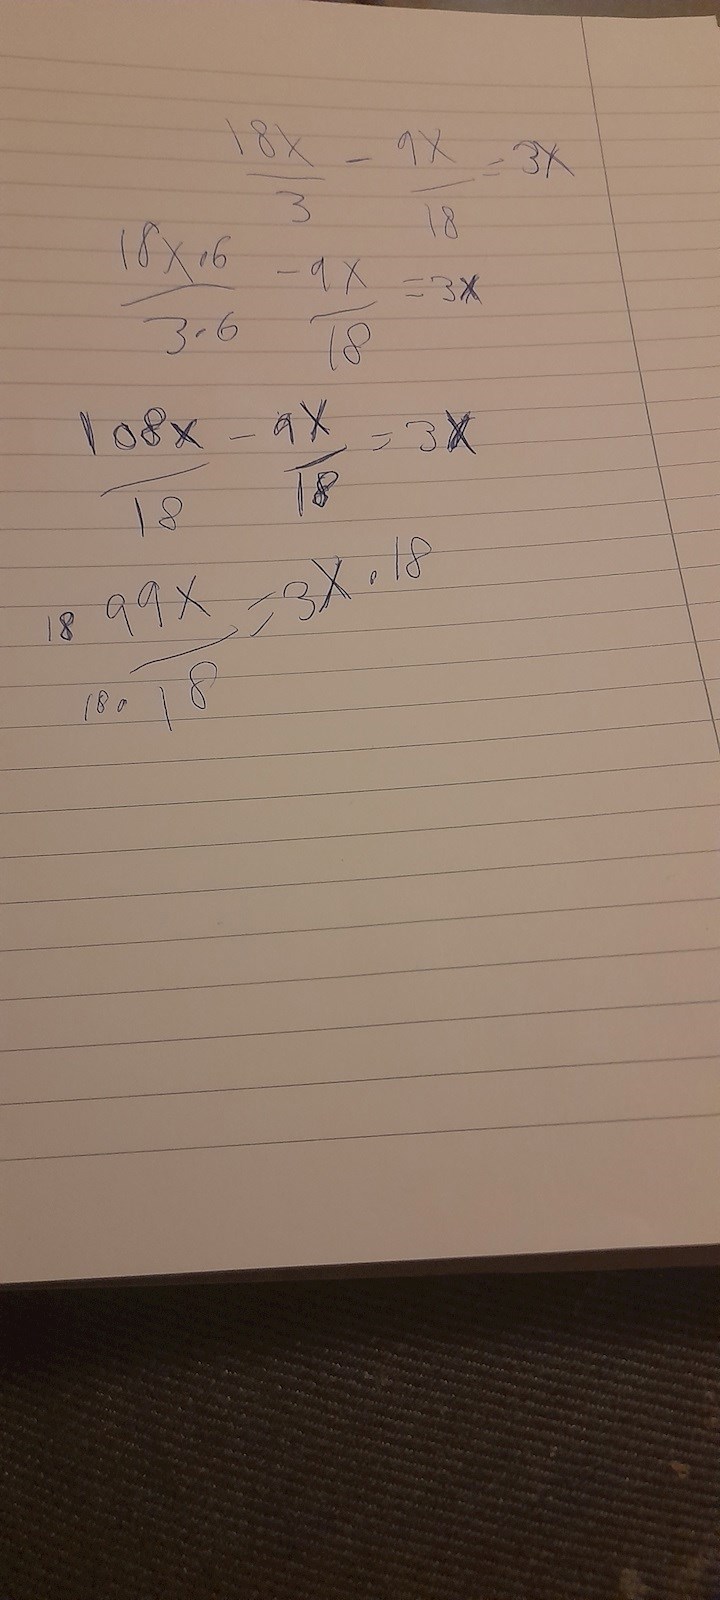 18x/3 - 9x/18 = 3x
18x·6/3·6 - 9x/18 = 3x
108x/18 - 9x/18 = 3x
18 99x/18· 18 = 3x·18